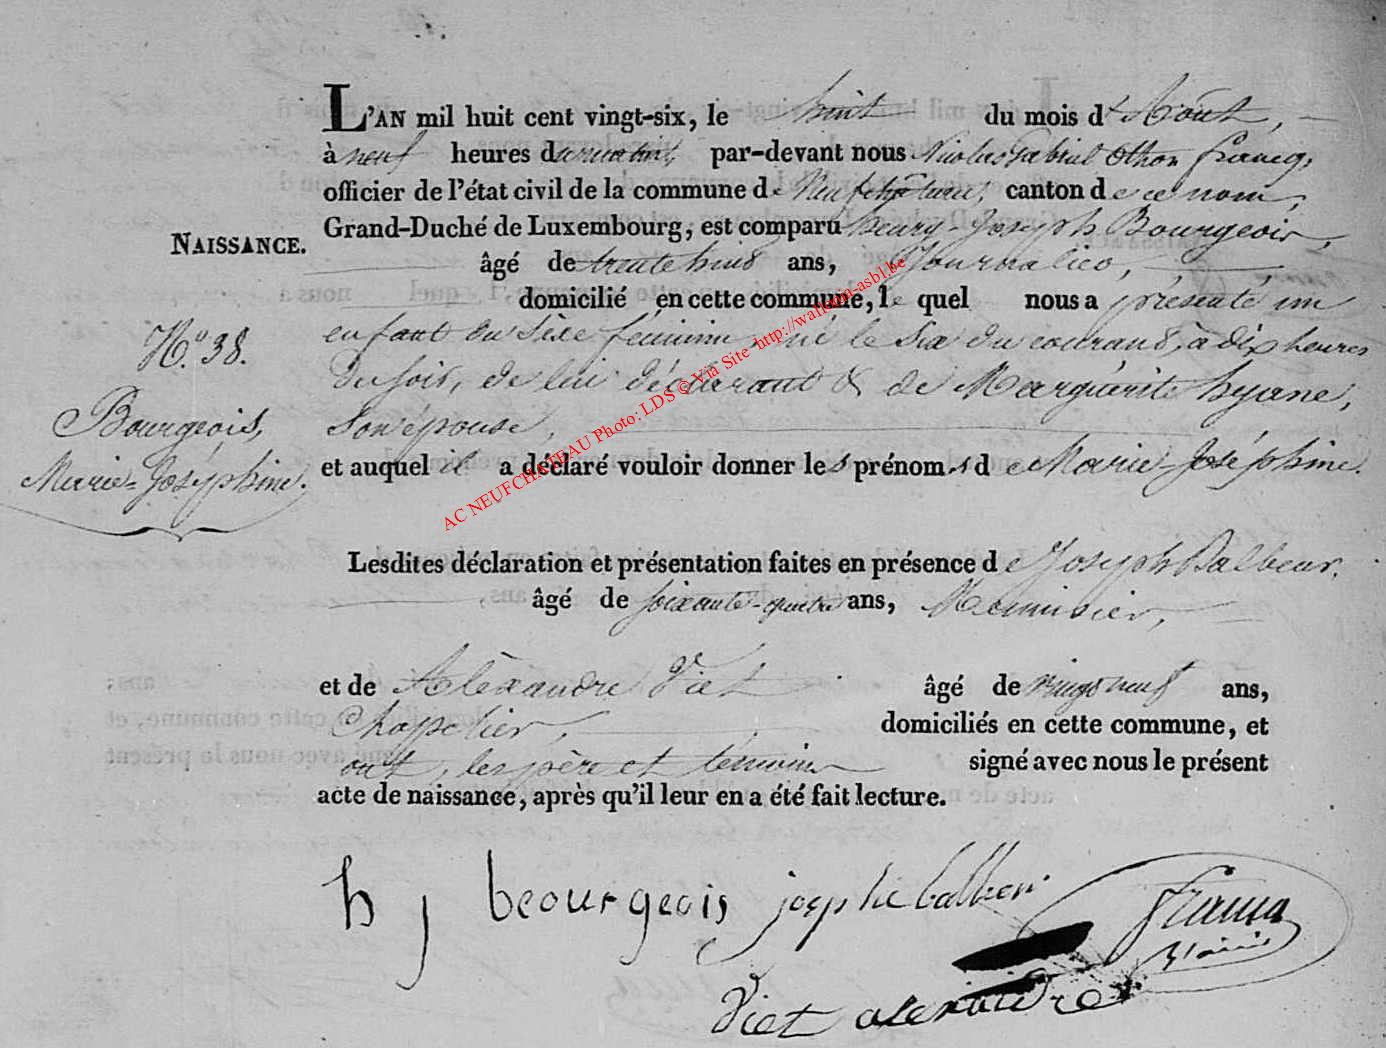 L'AN mil huit cent vingt-six, le huit du mois d'Août,
à neuf heures du matin, par-devant nous Nicolas Gabriel Othon Francq,
officier de l'état civil de la commune de Neufchâteau, canton de ce nom,
Grand-Duché de Luxembourg, est comparu henry-Joseph Bourgeois,
NAISSANCE.
âgé de trente huit ans, Journalier,
domicilié en cette commune, le quel nous a présenté un
N.o 38.
enfant du sèxe féminin, né le six du courant, à dix heures
du soir, de lui déclarant & de Marguérite hyane,
Bourgeois,
son épouse,
Marie-Joséphine.
et auquel il a déclaré vouloir donner les prénoms de Marie-Joséphine.
AC NEUFCHATEAU Photo: LDS © Via Site http://wallonia-asbl.be
Lesdites déclaration et présentation faites en présence de Joseph Balbeur,
âgé de soixante-quatre ans, Menuisier,
et de Alèxandre Viet âgé de vingt neuf ans,
Chapelier, domiciliés en cette commune, et
ont, les père et témoins signé avec nous le présent
acte de naissance, après qu'il leur en a été fait lecture.
h j beourgeois joseph balbeur Francq
Viet alexandre